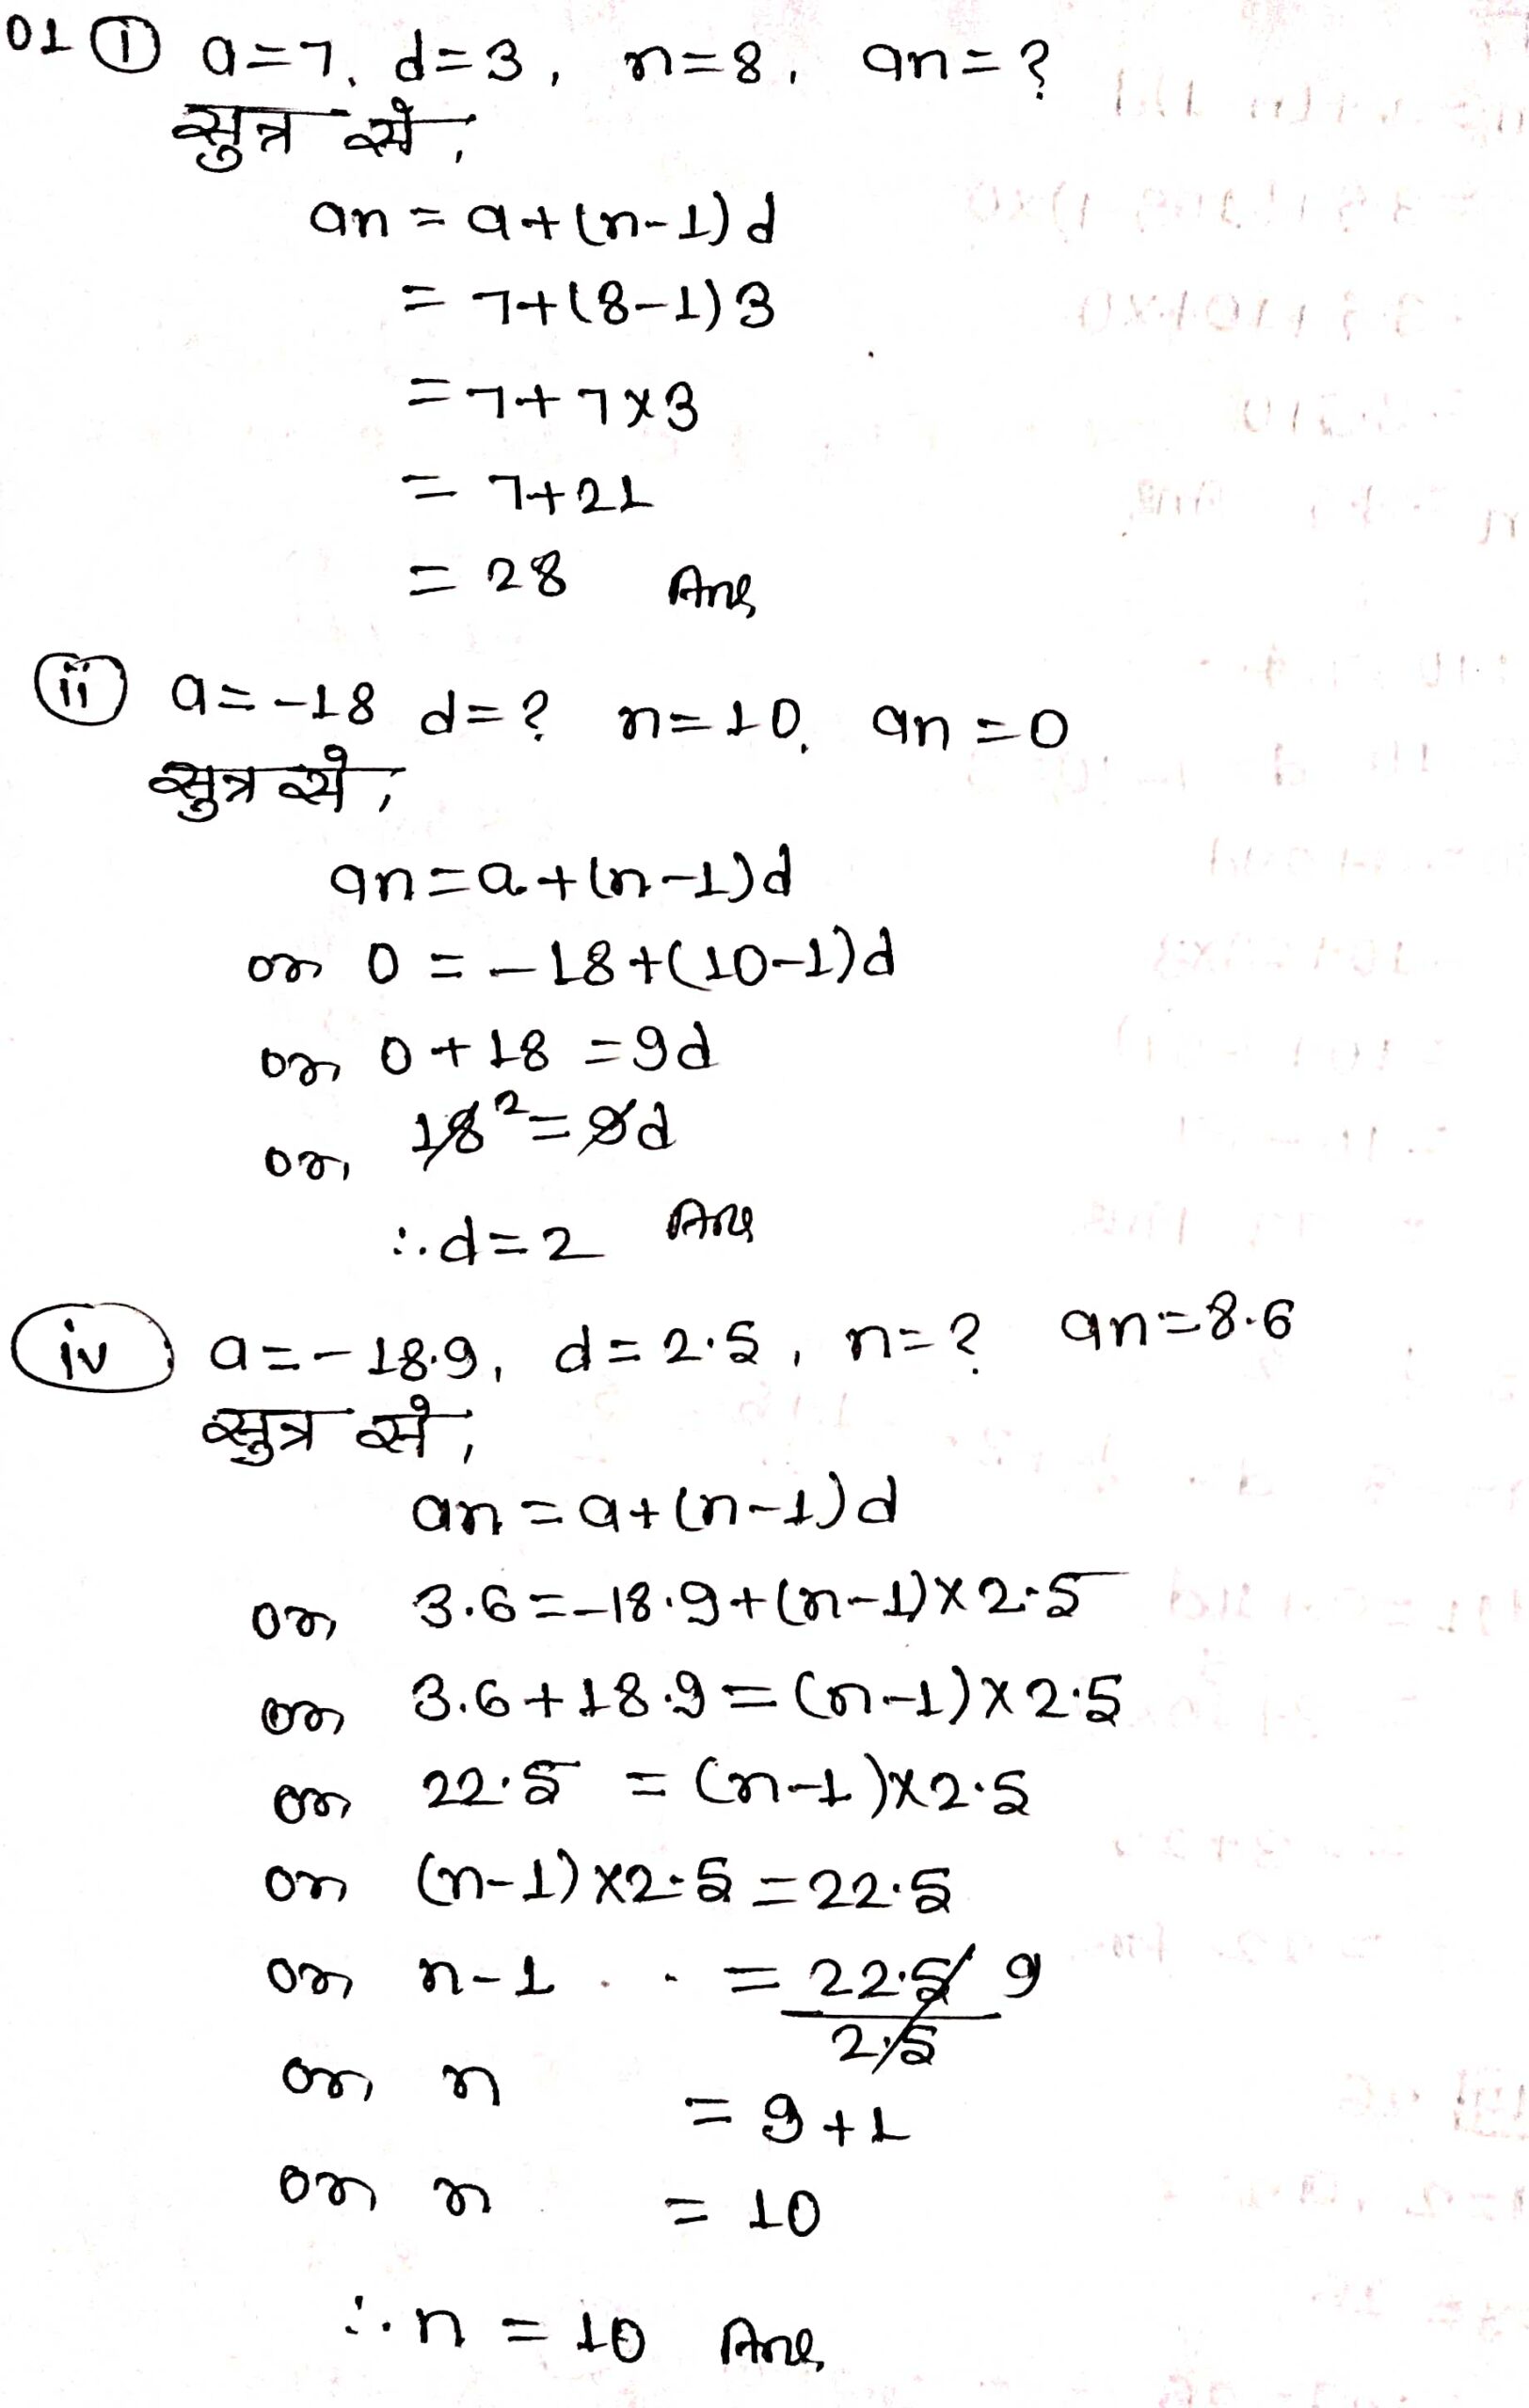 01 (i) a=7, d=3, n=8, an=?
सुत्र से,
an = a+(n-1)d
= 7+(8-1)3
= 7+7×3
= 7+21
= 28 Ans
(ii) a=-18 d=? n=10, an=0
सुत्र से,
an=a+(n-1)d
or 0 = -18+(10-1)d
or 0+18 =9d
or, 18 2 = 9d
∴d=2 Ans
(iv) a=-18.9, d=2.5, n=? an=8.6
सुत्र से,
an = a+(n-1)d
or, 3.6=-18.9+(n-1)×2.5
or 3.6+18.9=(n-1)×2.5
or 22.5 = (n-1)×2.5
or (n-1)×2.5=22.5
or, n-1 = 22.5 9
2.5
or, n = 9+1
or n = 10
∴n = 10 Ans